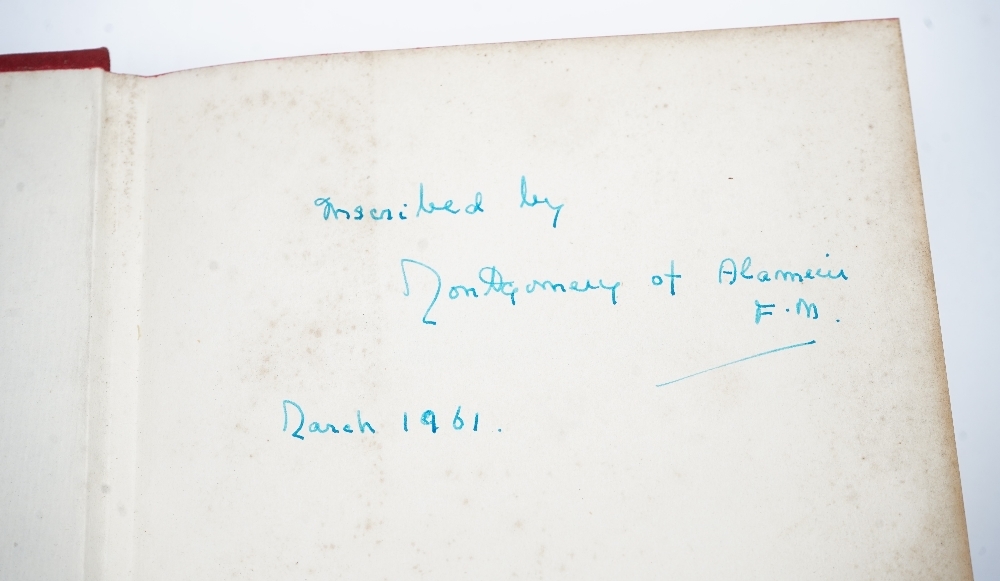 Inscribed by
Montgomery of Alamein
F.M.
March 1961.